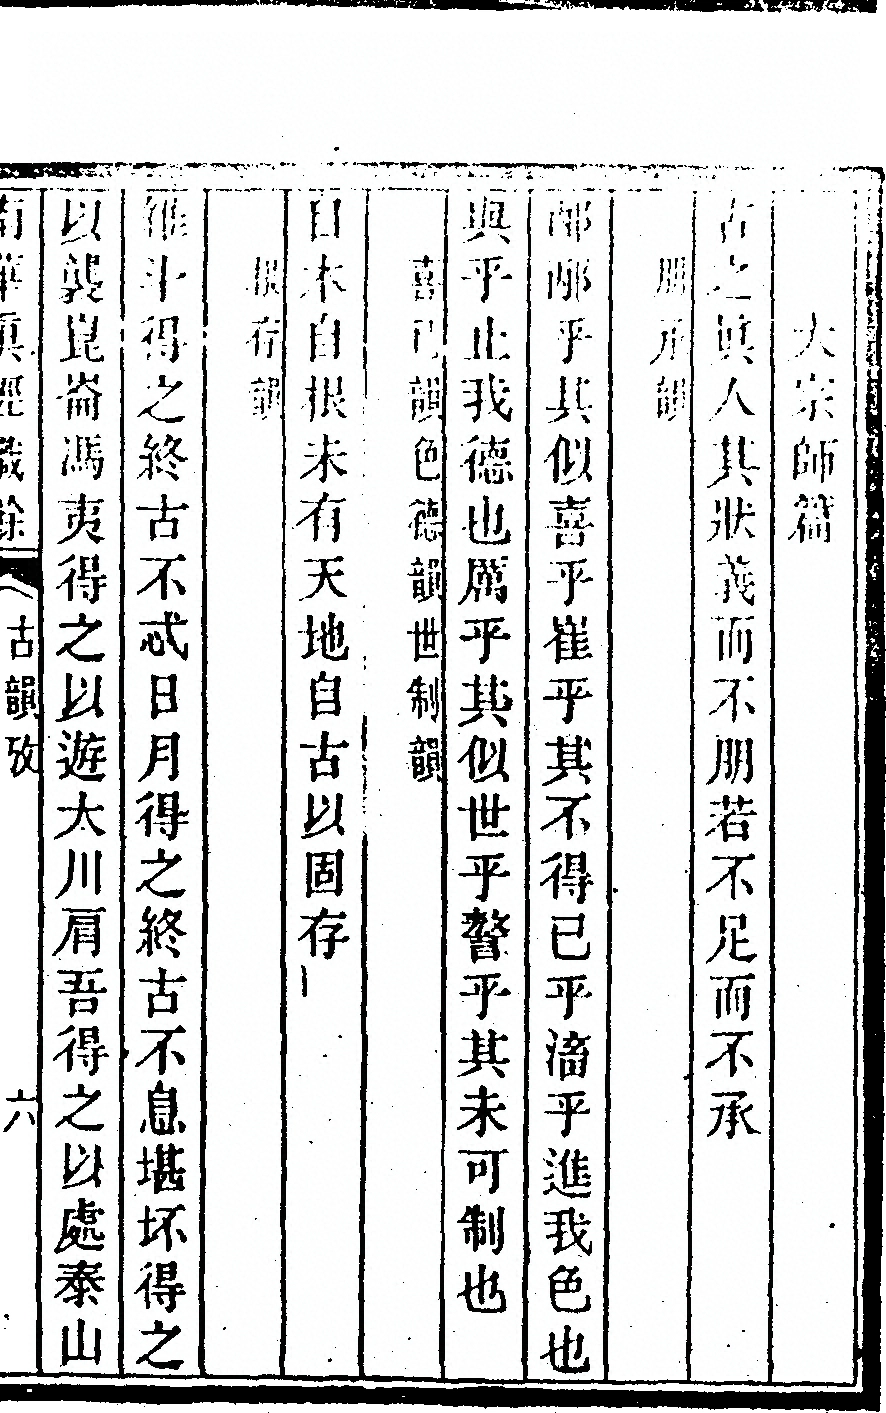 大宗師篇
古之眞人其狀義而不朋若不足而不承
朋承韻
邴邴乎其似喜乎崔乎其不得已乎滀乎進我色也
與乎止我德也厲乎其似世乎謷乎其未可制也
喜已韻色德韻世制韻
自本自根未有天地自古以固存
根存韻
維斗得之終古不忒日月得之終古不息堪坏得之
以襲崑崙馮夷得之以遊大川肩吾得之以處泰山
南華眞經識餘
古韻攷
六